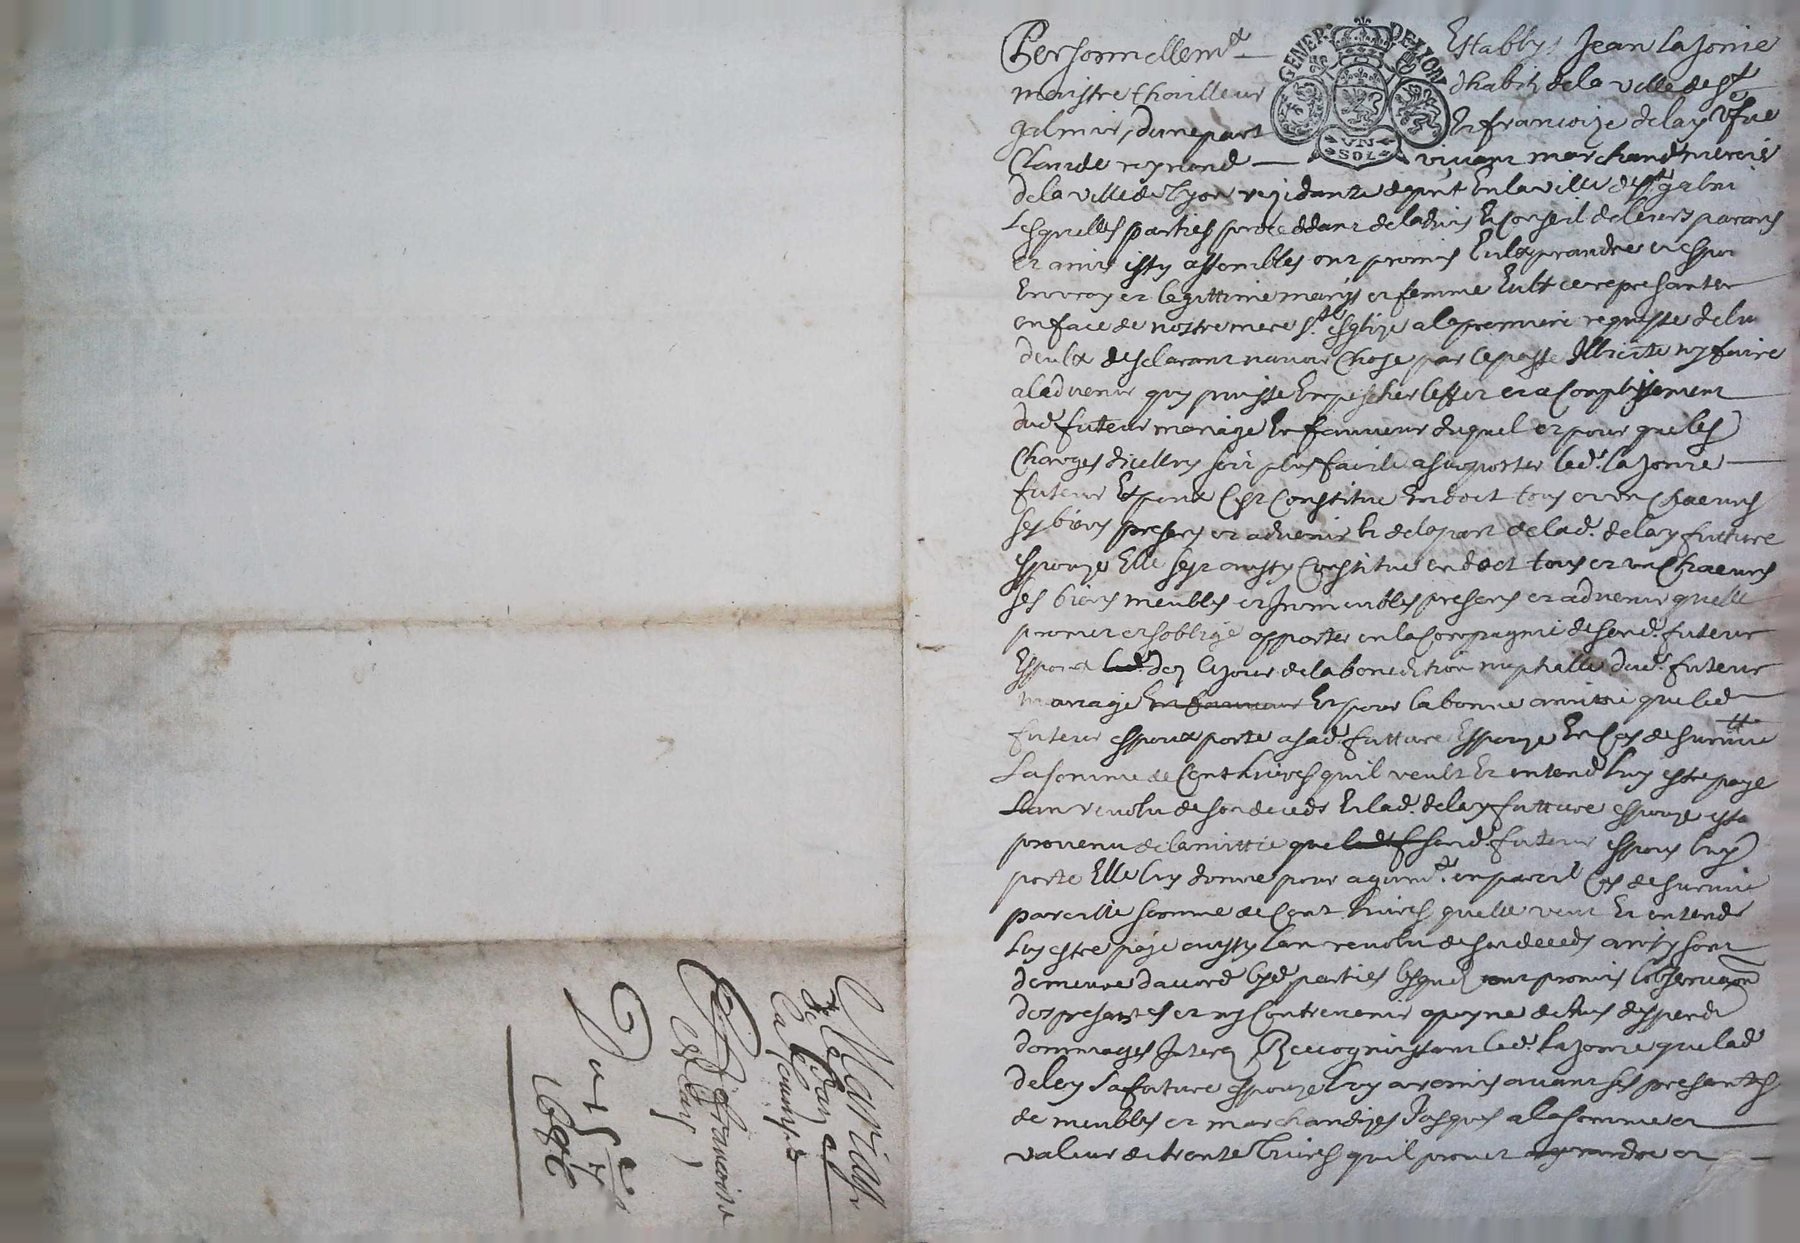 Personnellemt Establys Jean Lajonie
maistre thailleur dhabis de la ville de St
galmier, dune part Et francoize delay vfve
Claude reynond vivant marchand mercie
de la ville de Lyon rezidante a prnt En la ville de St galmi
Lesquelles parties proceddant de ladvis Et Conseil de leurs parans
et amis issy assembles ont promis Eulx prandre et espou
En vray et legittime marys et femme Eulx se representer
en face de nostre mere Ste esglize a la premiere requiste de lu
deulx desclarant navoir Choze par le passe ny faire
a ladvenir quy puisse Empescher leffet et acomplissement
dud futeur mariage En faveur duquel et pour que les
Charges dicelluy soit plus facile a suporter led. Lajonie
futeur Expoux Cest Constitue En doct tous et un Chacuns
ses biens presens et advenir Et de la part de lad. delay future
espouze Elle sest aussy Constitue en doct tous et un Chacuns
ses biens meubles et Immeubles presens et advenir quelle
promet et soblige apporter en la Compagnie de sond. futeur
Espoux led. dez le jour de la benediction nuptialle dud. futeur
mariage En faveur Et pour la bonne amittie que led
futeur espoux porte a sad. future Espouze En Cas de survie
La somme de Cent livres quil veult Et entend luy estre paye
Lan revolu de son deceds Et lad. delay future espouze
provenu de lamittie que sond. futeur espoux luy
porte Elle luy donne pour augmt. en pareil Cas de survie
pareille somme de Cent livres quelle veut Et entend
luy estre paye aussy lan revolu de son deceds ainsy sont
demeure daccord lesd parties lesquel ont promis lobservaon
des presantes et ny Contrevenir a peyne de tous despendz
dommages Interez Recognoissant led. Lajonie que lad
delay sa future espouze luy a remis avant ses presantes
de meubles et marchandizes Jusques a la somme et
valeur de trente livres quil promet et
GENER DE LYON
UN
SOL
Mariage
de Jean
La Jounie
Et francoize
delay
Du 5e
1686